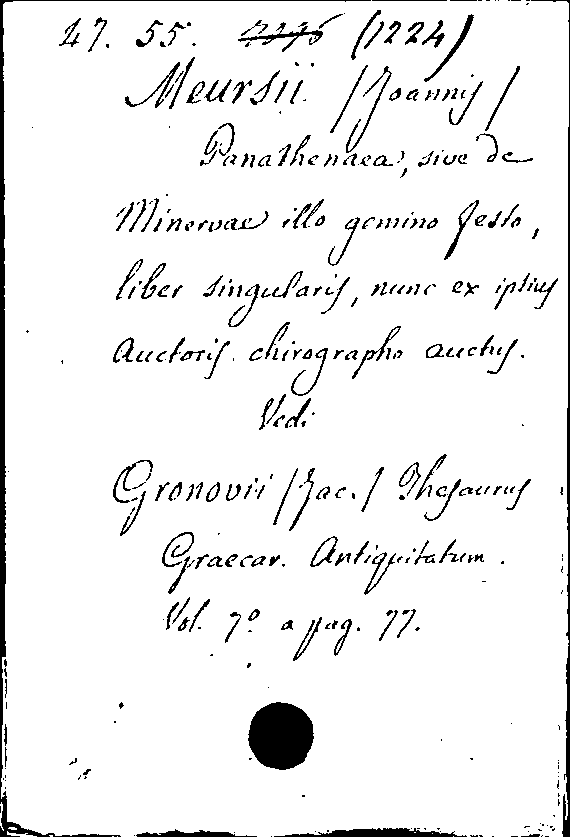 47. 55. (1224)
Meursii /Joannis/
Panathenaea, sive de
Minervae illo gemino festo,
liber singularis, nunc ex ipsius
Auctoris chirographo auctus.
Vedi
Gronovii /Jac./ Thesaurus
Graecar. Antiquitatum.
Vol. 7º a pag. 77.